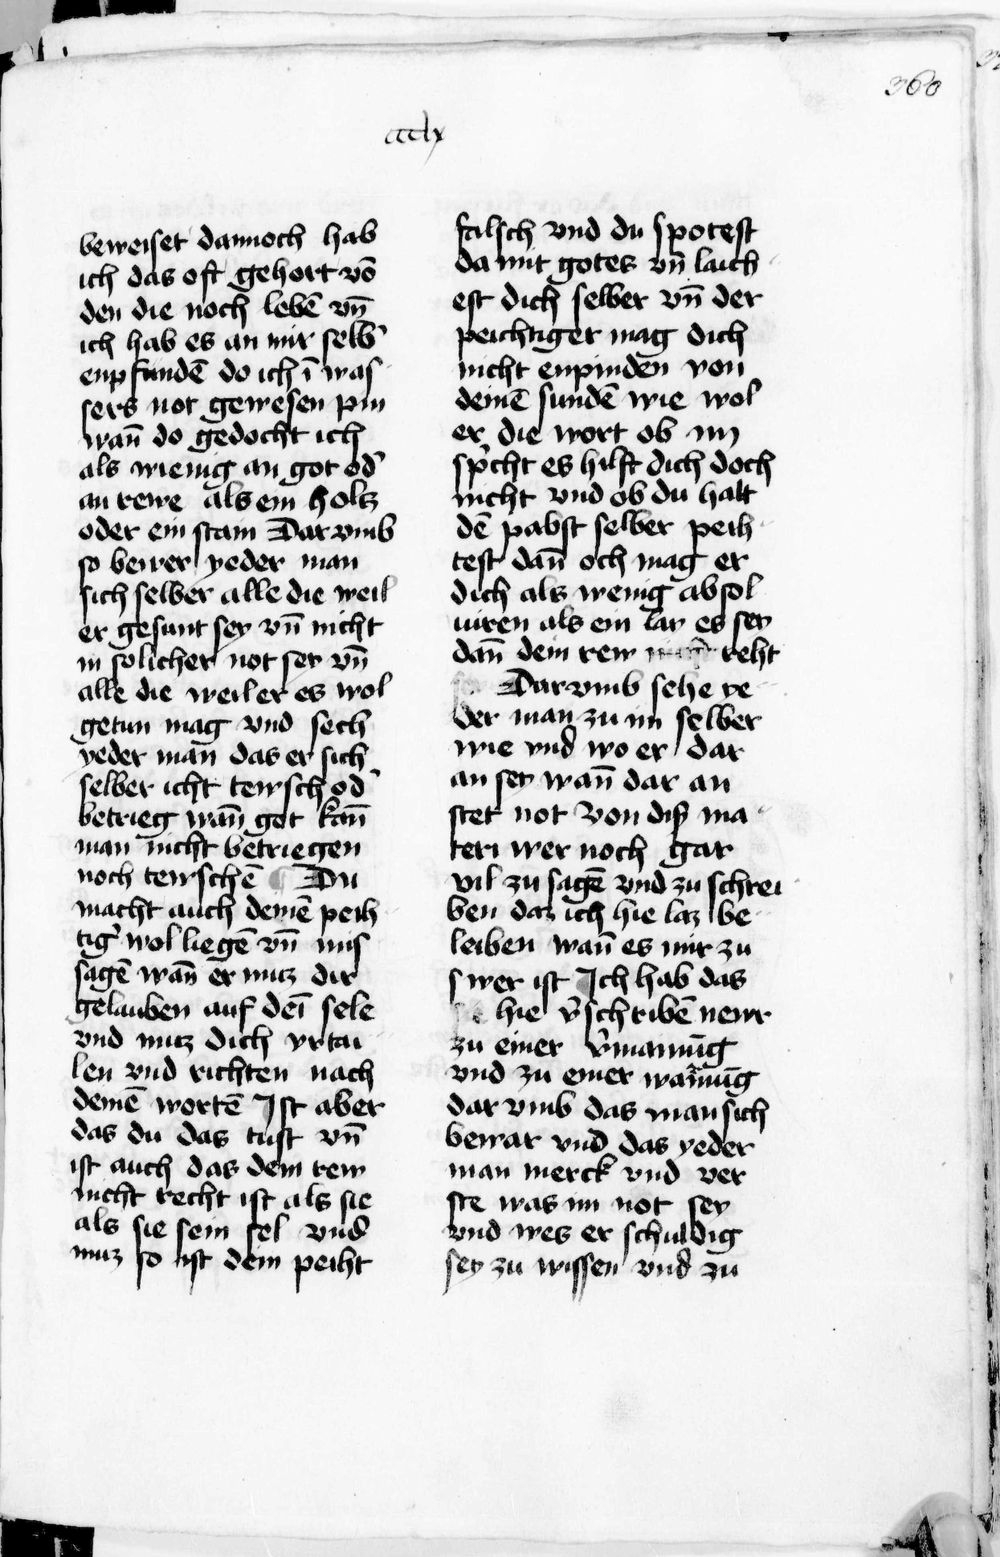 360
ccclx
beweiset dannoch hab
ich das oft gehort võ
den die noch lebẽ vñ
ich hab es an mir selb̾
enpfundẽ do ich ĩ was
sers not gewesen pin
wañ do gedocht ich
als wienig an got od̾
an rewe als ein holtz
oder ein stain Dar vmb
so bewer yeder man
sich selber alle die weil
er gesunt sey vñ nicht
in solicher not sey vñ
alle die weil er es wol
getun mag vnd sech
yeder man das er sich
selber icht tewsch od̾
betrieg wañ got kañ
man nicht betriegen
noch tewschẽ ¶ Du
macht auch deinẽ peih
tig̾ wol liegẽ vñ mis
sagẽ wañ er muz dir
gelauben auf deĩ sele
vnd muz dich vrtai
len vnd richten nach
deinẽ wortẽ Ist aber
das du das tust vñ
ist auch das dein rew
nicht recht ist als sie
als sie sein sel vnd
muz so ist dein peiht
falsch vnd du spotest
da mit gotes vñ laich
est dich selber vñ der
peichtiger mag dich
nicht enpinden von
deinẽ sundẽ wie wol
er die wort ob im
sp̾cht es hilft dich doch
nicht vnd ob du halt
dẽ pabst selber peih
test dañ och mag er
dich als wenig absol
uiren als ein lay es sey
dañ dein rew reht
Dar vmb sehe ye
der man zu im selber
wie vnd wo er dar
an sey wañ dar an
stet not Von diser ma
teri wer noch gar
vil zu sagẽ vnd zu schrei
ben daz ich hie laz be
leiben wañ es mir zu
swer ist Ich hab das
hie v̾schribẽ newr
zu einer v̾manũg
vnd zu einer warnũg
dar vmb das man sich
bewar vnd das yeder
man merck vnd ver
ste was im not sey
vnd wes er schuldig
sey zu wissen vnd zu